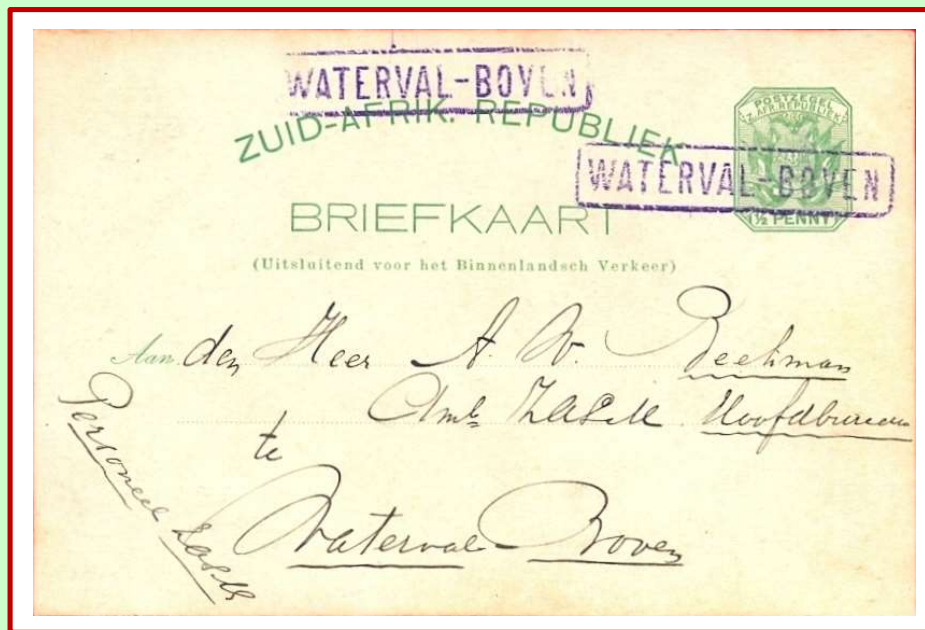 WATERVAL-BOVEN
ZUID-AFRIK. REPUBLIEK
POSTZEGEL
Z. AFR. REPUBLIEK
WATERVAL-BOVEN
½ PENNY
BRIEFKAART
(Uitsluitend voor het Binnenlandsch Verkeer)
Aan den Heer A. W. Beekman
Ambr ZASM Hoofdbureau
te
Waterval Boven
Personeel ZASM